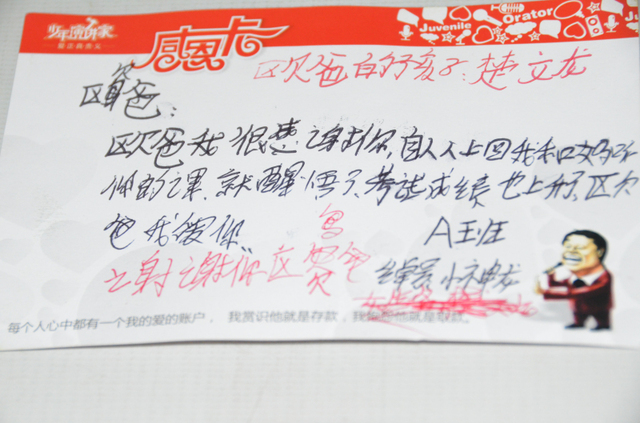 少年演说家
感恩卡
Juvenile
Orator
欧爸的孩子:楚文龙
欧爸:
欧爸我很想谢谢你,自从上回我和妈妈听
你的课,就醒悟了,考试成绩也上升了,欧
爸我爱你
谢谢你欧爸
A班
小神龙
每个人心中都有一个我的爱的账户, 我赏识他就是存款,我